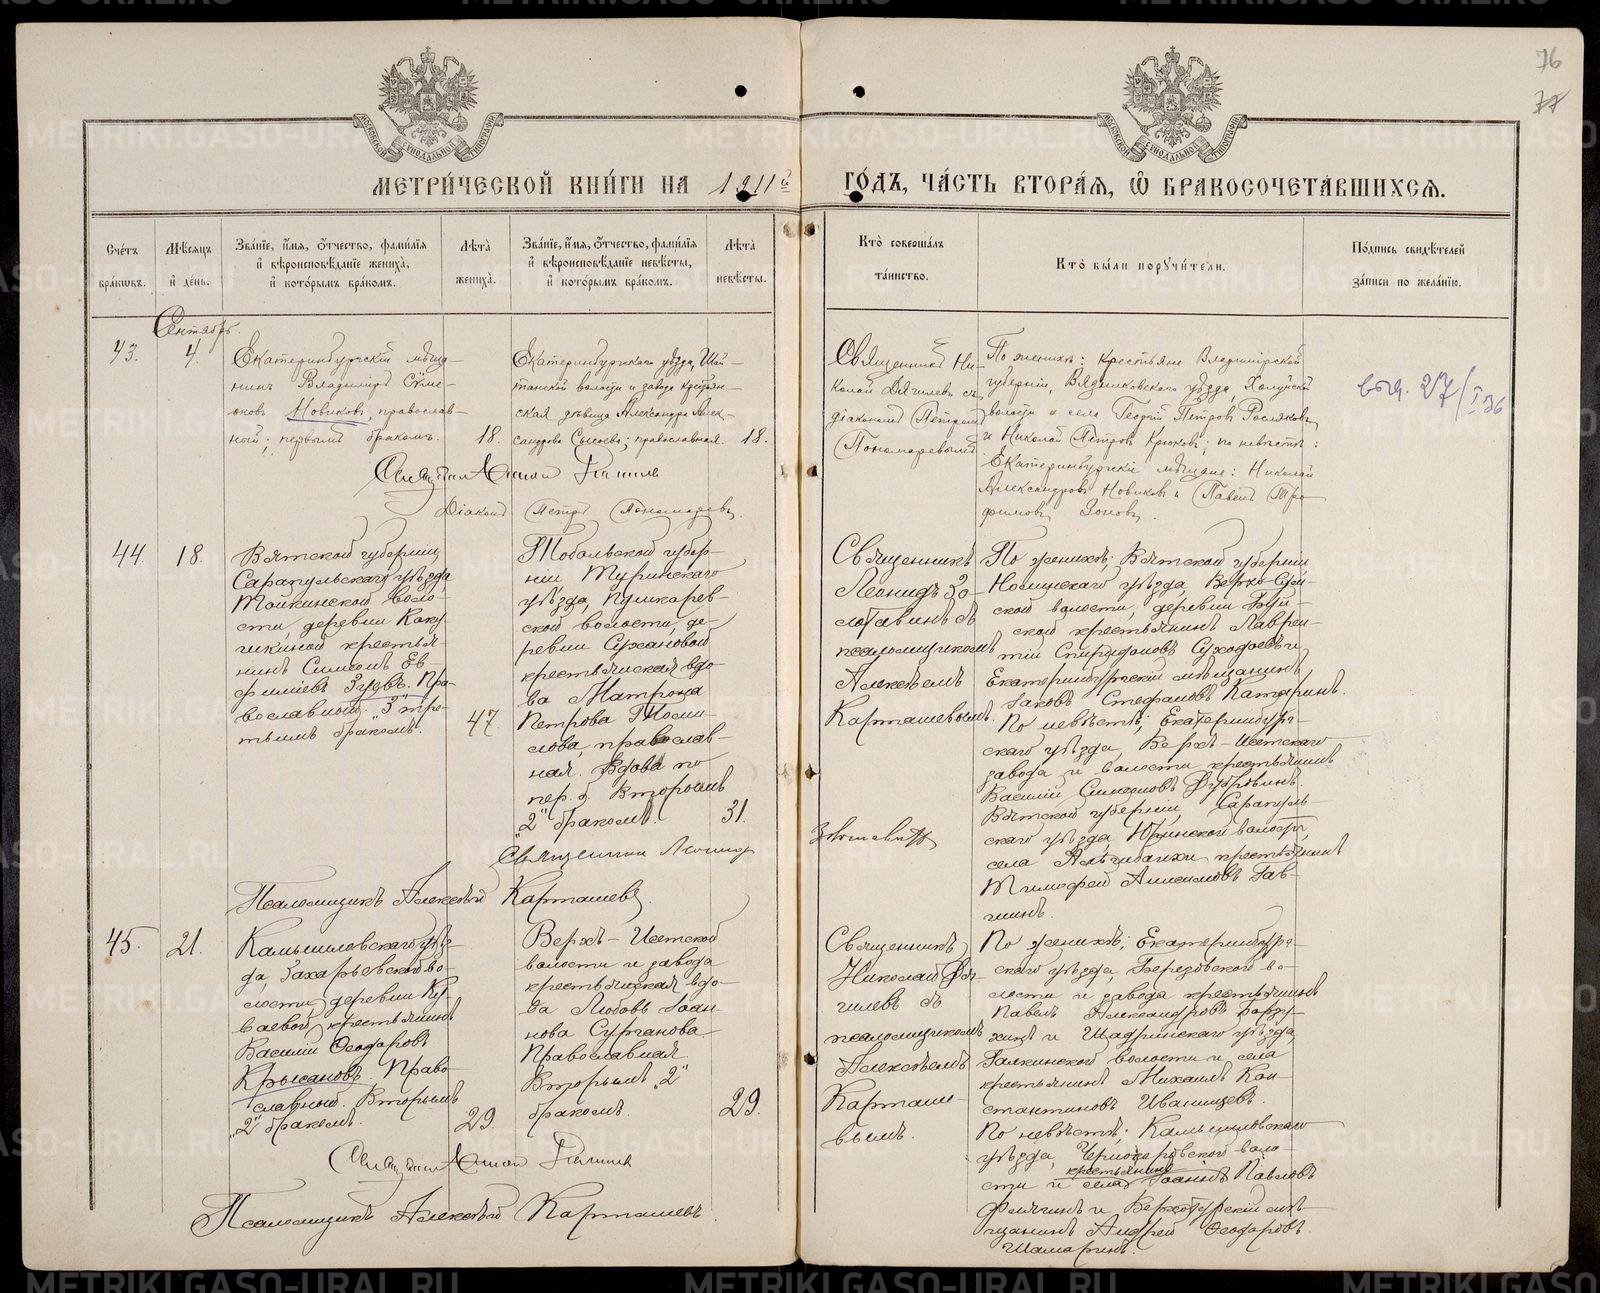 76
77
МЕТРИЧЕСКОЙ КНИГИ НА 1911й
ГОДЪ, ЧАСТЬ ВТОРАЯ, Ѡ БРАКОСОЧЕТАВШИХСЯ.
Счетъ браковъ.
Мѣсяцъ и день.
Званіе, имя, отчество, фамилія
и вѣроисповѣданіе жениха,
и которымъ бракомъ.
Лѣта жениха.
Званіе, имя, отчество, фамилія
и вѣроисповѣданіе невѣсты,
и которымъ бракомъ.
Лѣта невѣсты.
Кто совершалъ
таинство.
Кто были поручители.
Подпись свидѣтелей
записи по желанію.
Сентябрь.
43.
4.
Екатеринбургскій мѣща-
нинъ Владиміръ Симе-
оновъ Новиковъ, православ-
ный; первымъ бракомъ.
18.
Екатеринбургскаго уѣзда, Шай-
танской волости и завода крестьян-
ская дѣвица Александра Алек-
сандрова Сысоева; православная.
18.
Священникъ
Діаконъ Петръ Пономаревъ.
Священникъ Ни-
колай Дягилевъ съ
діакономъ Петромъ
Пономаревымъ
По женихѣ: крестьяне Владимірской
губерніи, Вязниковскаго уѣзда, Холуйской
волости и села Георгій Петровъ Росляковъ
и Николай Петровъ Крюковъ; по невѣстѣ:
Екатеринбургскіе мѣщане: Николай
Александровъ Новиковъ и Павелъ Тро-
фимовъ Зоновъ.
44.
18.
Вятской губерніи
Сарапульскаго уѣзда
Тойкинской воло-
сти, деревни Каку-
чикиной крестья-
нинъ Симеонъ Ев-
фиміевъ Зуевъ. Пра-
вославный. „3" тре-
тьимъ бракомъ.
47
Тобольской губер-
ніи Туринскаго
уѣзда,
ской волости, де-
ревни Сухановой
крестьянская вдо-
ва Матрона
Петрова
слова, православ-
ная. Вдова по
пер. б. Вторымъ
„2" бракомъ.
31.
Священникъ Леонидъ
Золотавинъ
Псаломщикъ Алексѣй Карташевъ.
Священникъ
Леонидъ Зо-
лотавинъ съ
псаломщикомъ
Алексѣемъ
Карташевымъ.
По женихѣ; Вятской губерніи
Нолинскаго уѣзда, Верхо-Сун-
ской волости, деревни
ской крестьянинъ Лаврен-
тій Спиридоновъ Суходоевъ и
Екатеринбургскій мѣщанинъ
Іаковъ Стефановъ Катаринъ.
По невѣстѣ; Екатеринбург-
скаго уѣзда, Верхъ-Исетскаго
завода и волости крестьянинъ
Василій Симеоновъ Дубровинъ.
Вятской губерніи, Сарапуль-
скаго уѣзда, волости,
села крестьянинъ
Тимофей Анисимовъ Гав-
шинъ.
45.
21.
Камышловскаго уѣз-
да, Захарьевской во-
лости, деревни Кер-
ваевой крестьянинъ
Василій Ѳеодоровъ
Крысановъ. Право-
славный. Вторымъ
„2" бракомъ.
29.
Верхъ-Исетской
волости и завода
крестьянская вдо-
ва Любовь Іоан-
нова Сурганова
Православная
Вторымъ „2"
бракомъ.
29.
Священникъ
Псаломщикъ Алексѣй Карташевъ.
Священникъ
Николай Дя-
гилевъ съ
псаломщикомъ
Алексѣемъ
Карташе-
вымъ.
По женихѣ; Екатеринбург-
скаго уѣзда, Березовскаго во-
лости и завода крестьянинъ
Павелъ Александровъ
и Шадринскаго уѣзда,
Галкинской волости и села
крестьянинъ Михаилъ Кон-
стантиновъ Иванищевъ.
По невѣстѣ; Камышловскаго
уѣзда, воло-
сти и села крестьянинъ Іоаннъ Павловъ
и Верхотурскій мѣ-
щанинъ Андрей Ѳеодоровъ
Шамаринъ.